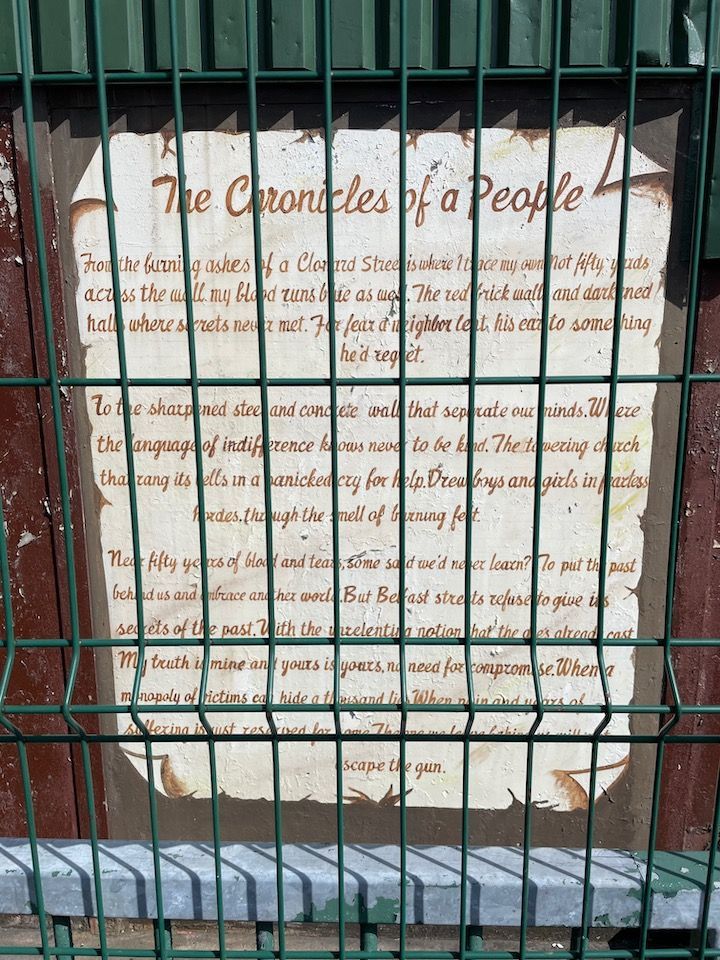 The Chronicles of a People
From the burning ashes of a Clonard Street is where I trace my own. Not fifty yards
across the wall my blood runs blue as well. The red brick walls and darkened
halls where secrets never met. For fear a neighbor lent his ear to something
he'd regret.
To the sharpened steel and concrete walls that separate our minds. Where
the language of indifference knows never to be kind. The towering church
that rang its bells in a panicked cry for help. Drew boys and girls in fearless
hordes, through the smell of burning felt.
Near fifty years of blood and tears, some said we'd never learn? To put the past
behind us and embrace another world. But Belfast streets refuse to give its
secrets of the past. With the unrelenting notion that the dies already cast
My truth is mine and yours is yours, no need for compromise. When a
monopoly of victims can hide a thousand lies. When pain and years of
suffering is just reserved for some. The ones we leave behind us will not
escape the gun.